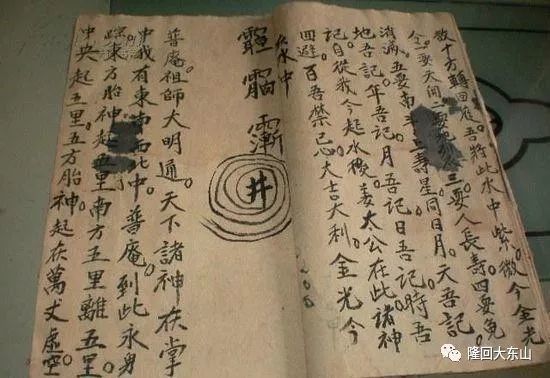 十方轉回 吾將此水中紫微今金光
今 要天開二要 三要人長壽四要免
消 五要南斗 壽星同日月。天吾記
地吾記年吾記月吾記日吾記時吾
記自從我今起水 姜太公在此諸神
迴避百 禁忌大吉大利金光今
水中
井
普庵祖師大明通。天下諸神在掌
中我有東南西北中。普庵到此永身
東方胎神起五里南方五里離五里
中央起五里五方胎神。起在萬丈虛空。
隆回大东山